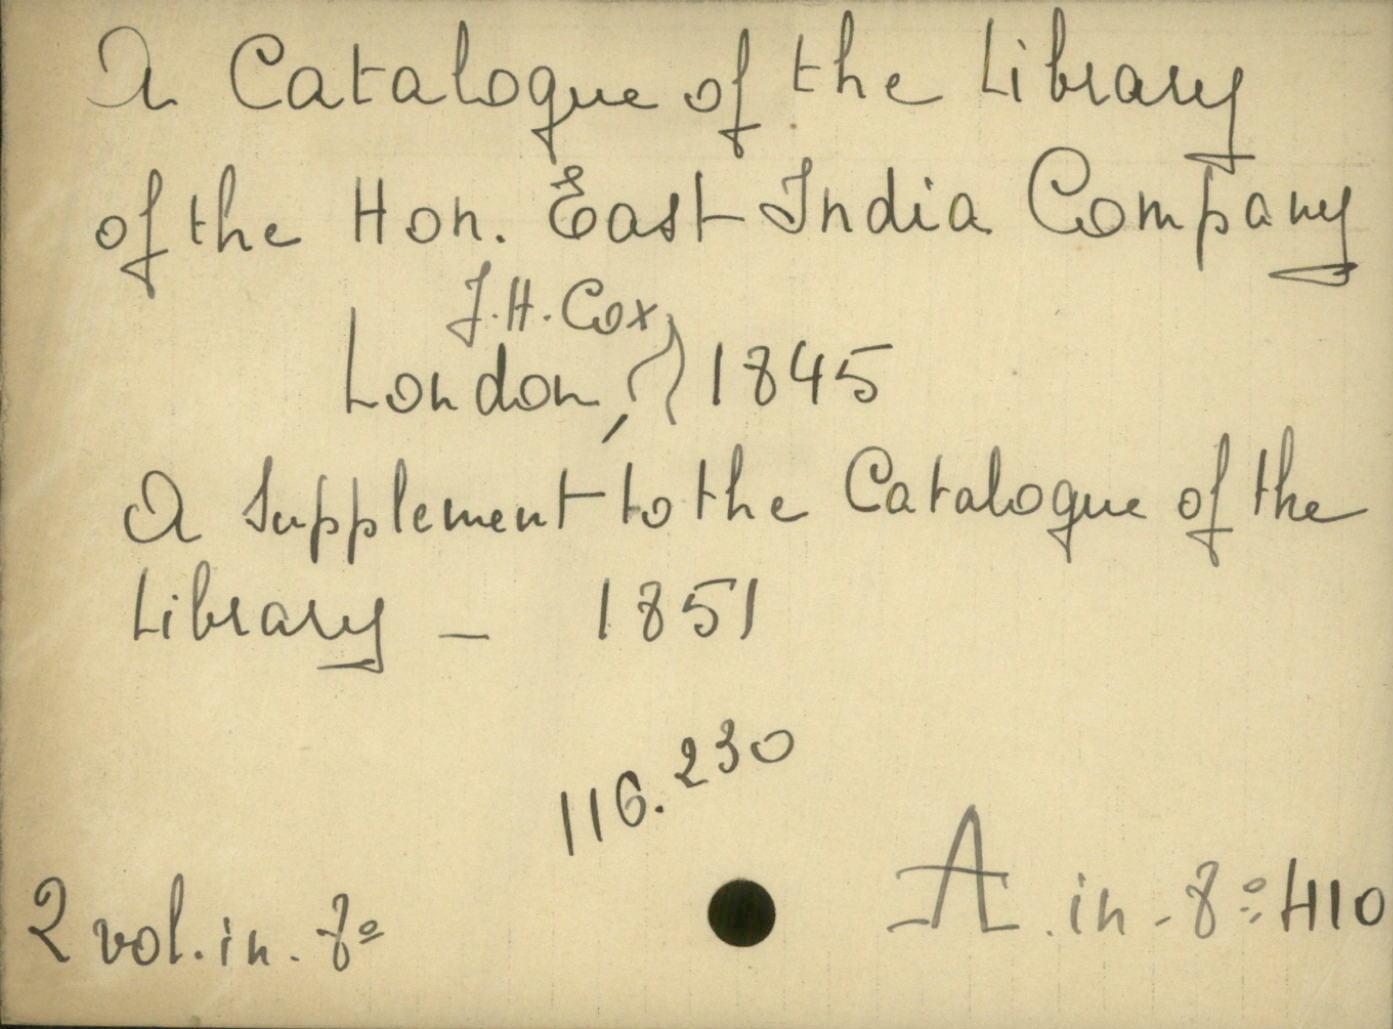 A Catalogue of the Library
of the Hon. East India Company
J.H. Cox
London, 1845
A Supplement to the Catalogue of the
Library _ 1851
116.230
2 vol. in-8º
A. in-8º: 410